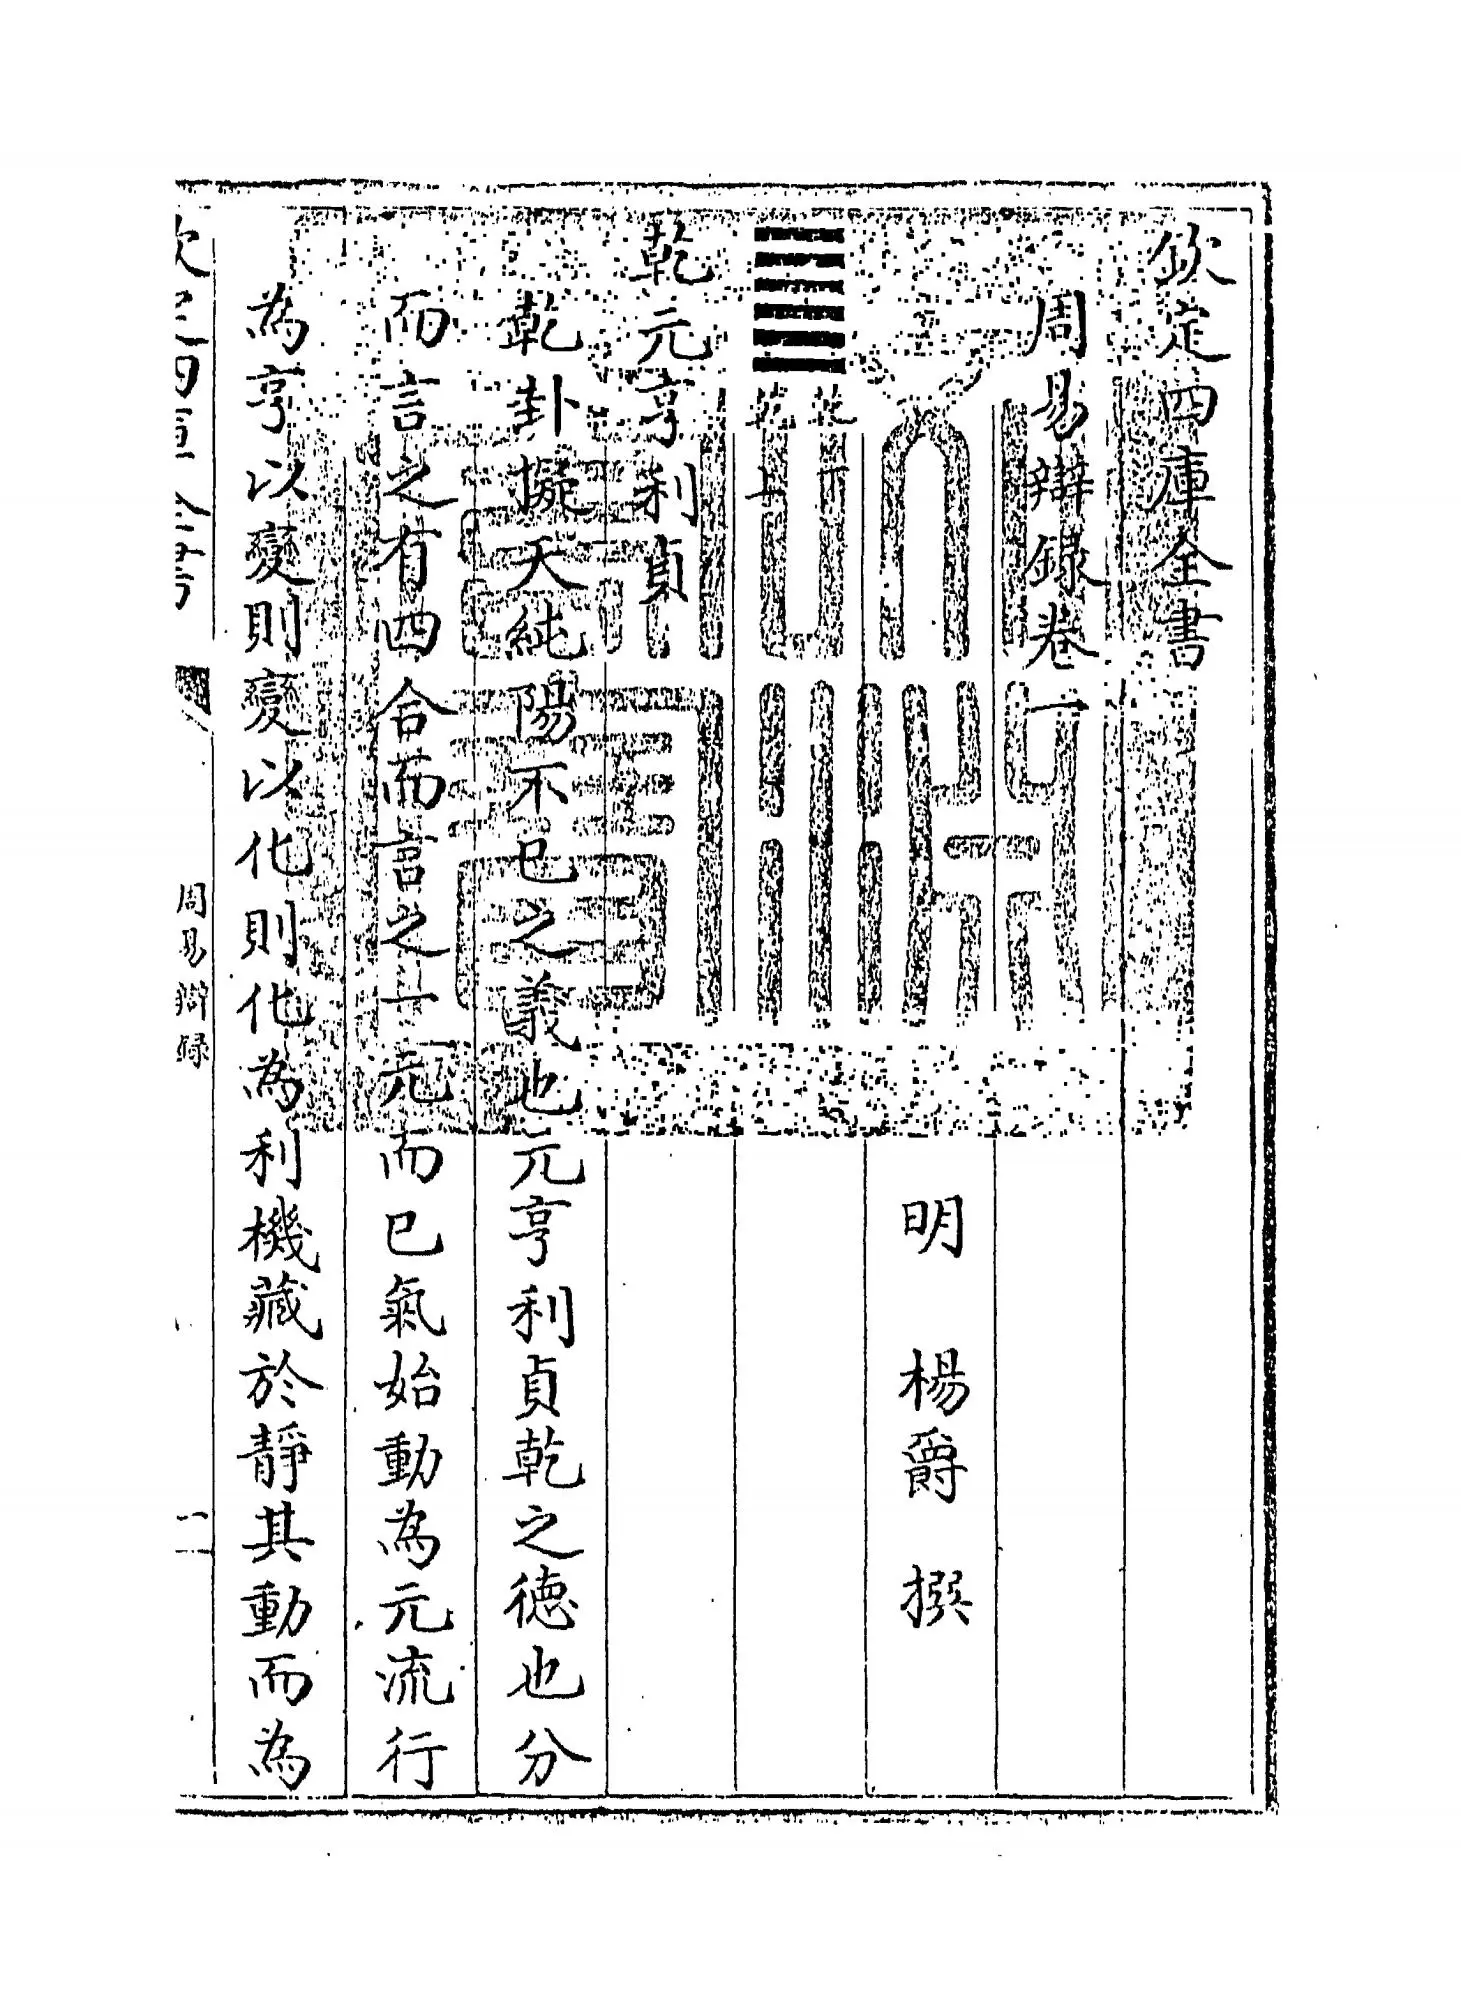 欽定四庫全書
周易辯録卷一
明 楊爵 撰
乾下
乾上
乾元亨利貞
乾卦擬天純陽不已之義也元亨利貞乾之德也分
而言之有四合而言之一元而已氣始動為元流行
為亨以變則變以化則化為利機藏於靜其動而為
欽定四庫全書
周易辯録